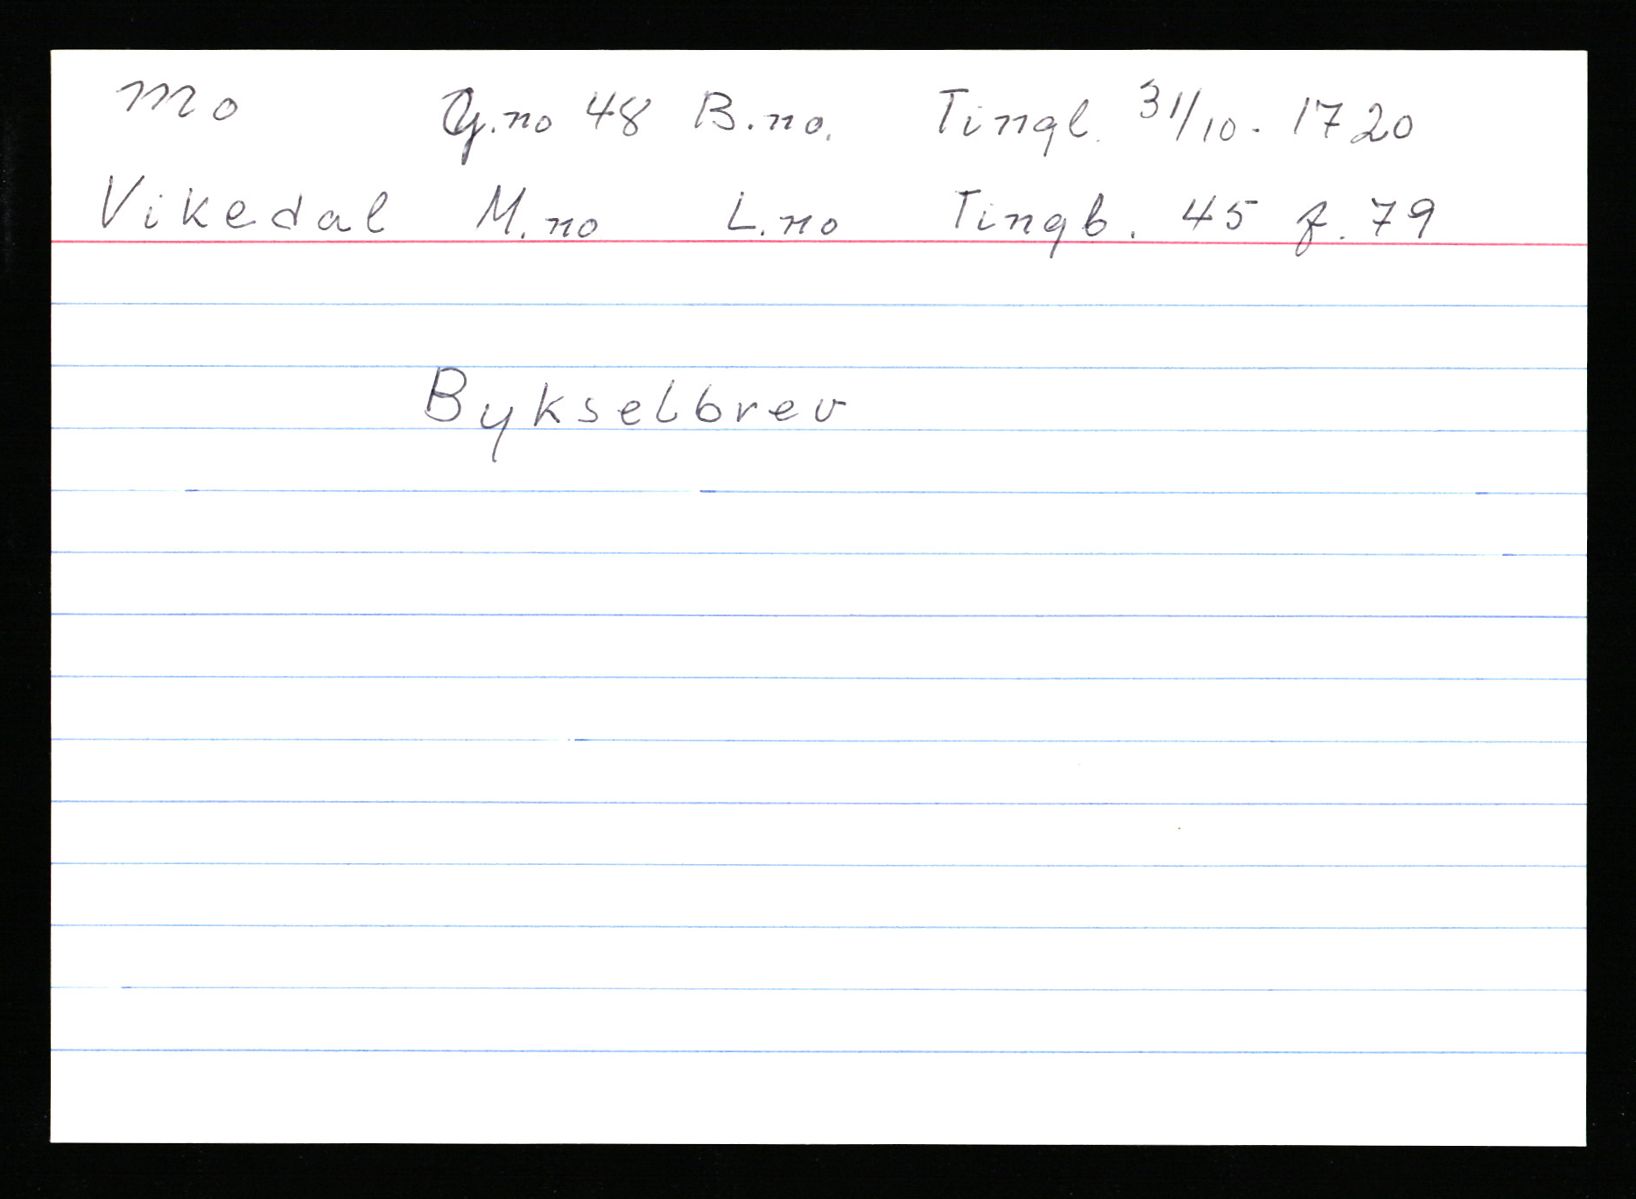 Mo G.no 48 B.no. Tingl. 31/10. 1720
Vikedal M.no L.no Tingb. 45 f. 79
Bykselbrev